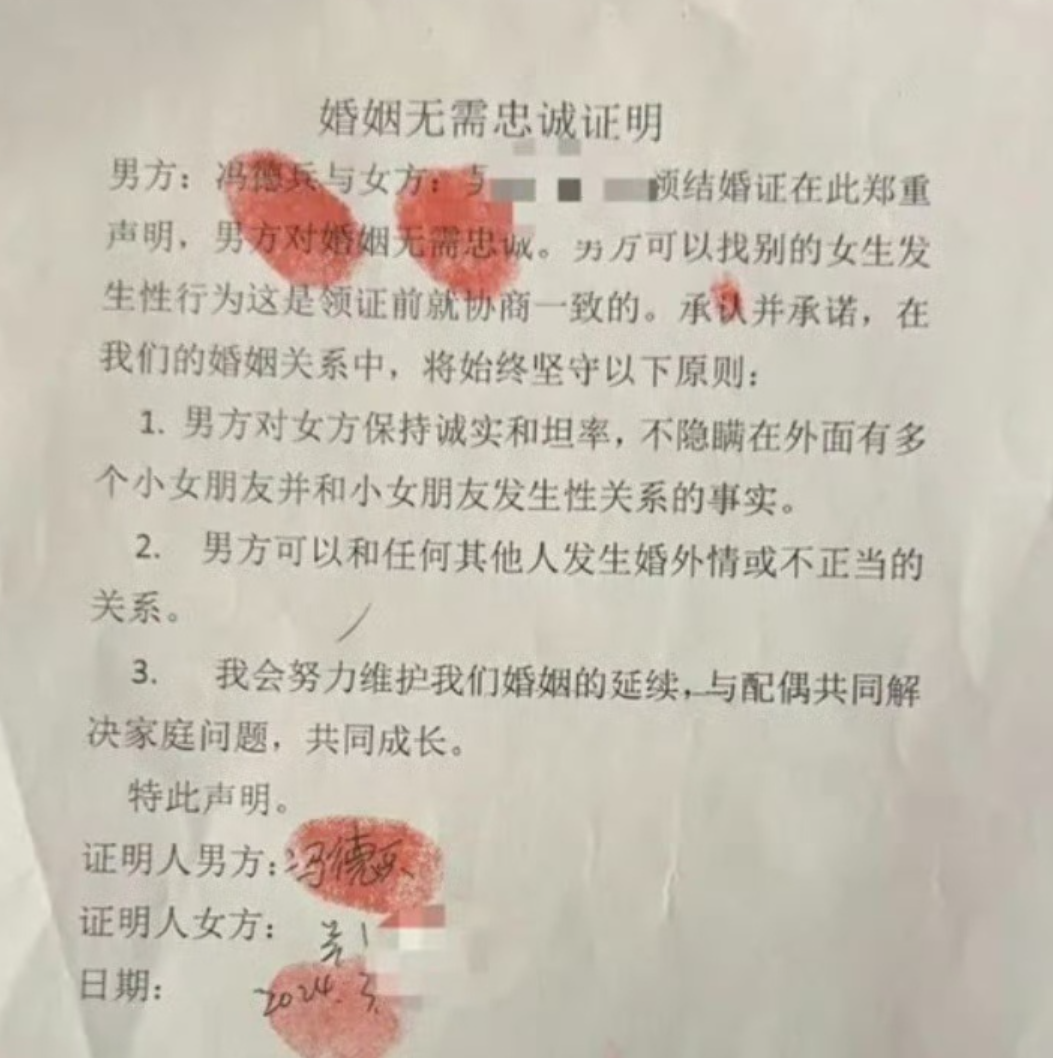 婚姻无需忠诚证明
男方：冯德兵与女方：    领结婚证在此郑重
声明，男方对婚姻无需忠诚。男方可以找别的女生发
生性行为这是领证前就协商一致的。承认并承诺，在
我们的婚姻关系中，将始终坚守以下原则：
1. 男方对女方保持诚实和坦率，不隐瞒在外面有多
个小女朋友并和小女朋友发生性关系的事实。
2. 男方可以和任何其他人发生婚外情或不正当的
关系。
3. 我会努力维护我们婚姻的延续，与配偶共同解
决家庭问题，共同成长。
特此声明。
证明人男方：冯德兵
证明人女方：
日期：2024.3.